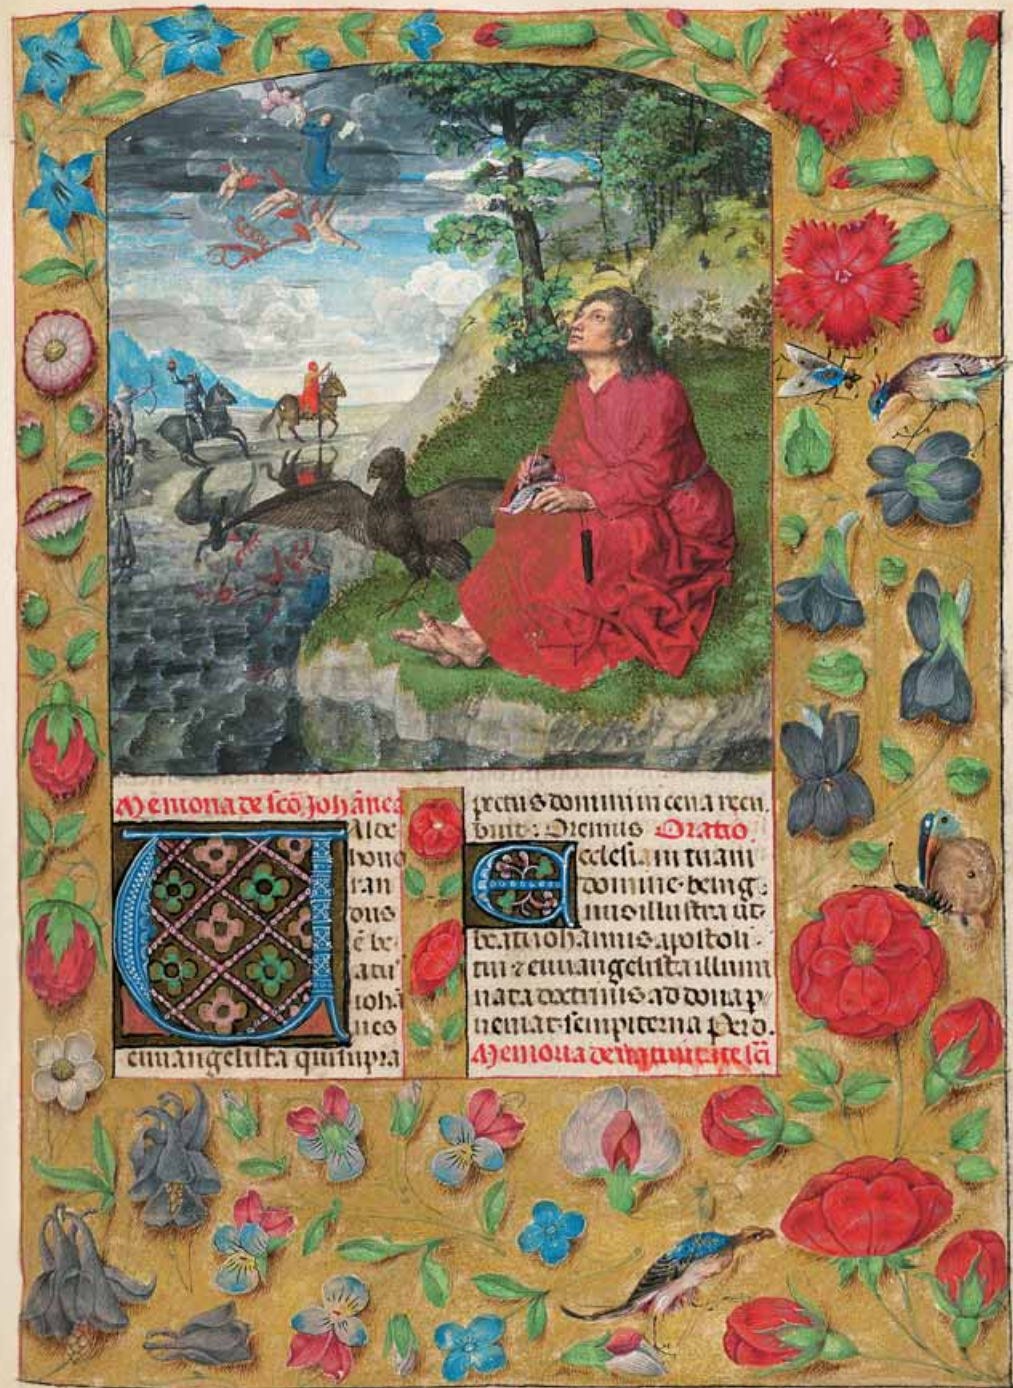 Memoria de scō Johānē
Ualde
hono
ran
dus
ē be
atus
iohā
nes
euuangelista qui supra
pectus domini in cena recu
buit: Oremus Oratio
Ecclesiam tuam
domine benig
nus illustra ut
beati iohannis apostoli
tui ⁊ euuangelista illumi
nata doctrinis ad dona p
ueniat sempiterna Per d.
Memoria de natiuitate scī